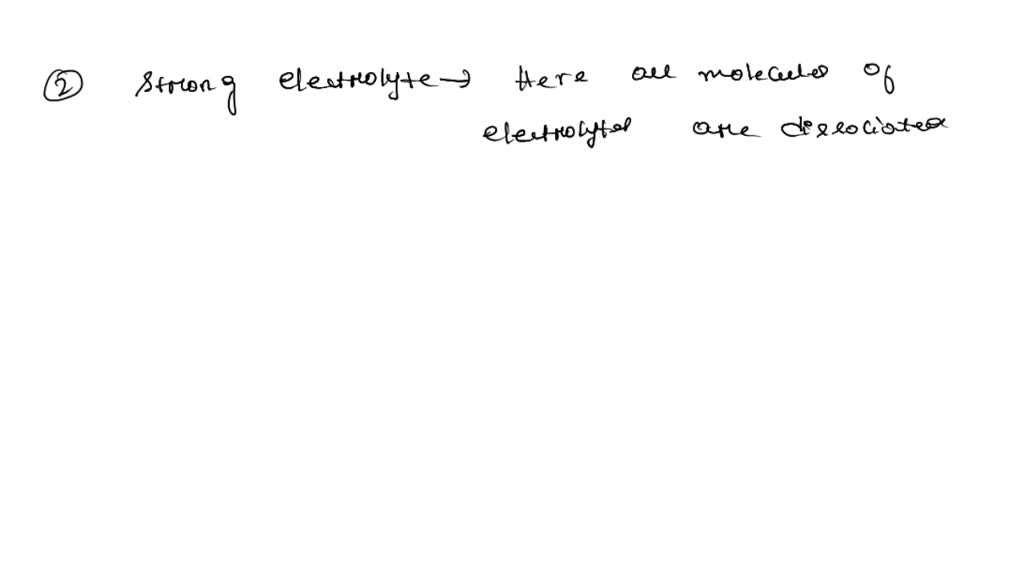 ② Strong electrolyte → Here all molecules of
electrolytes are dissociated